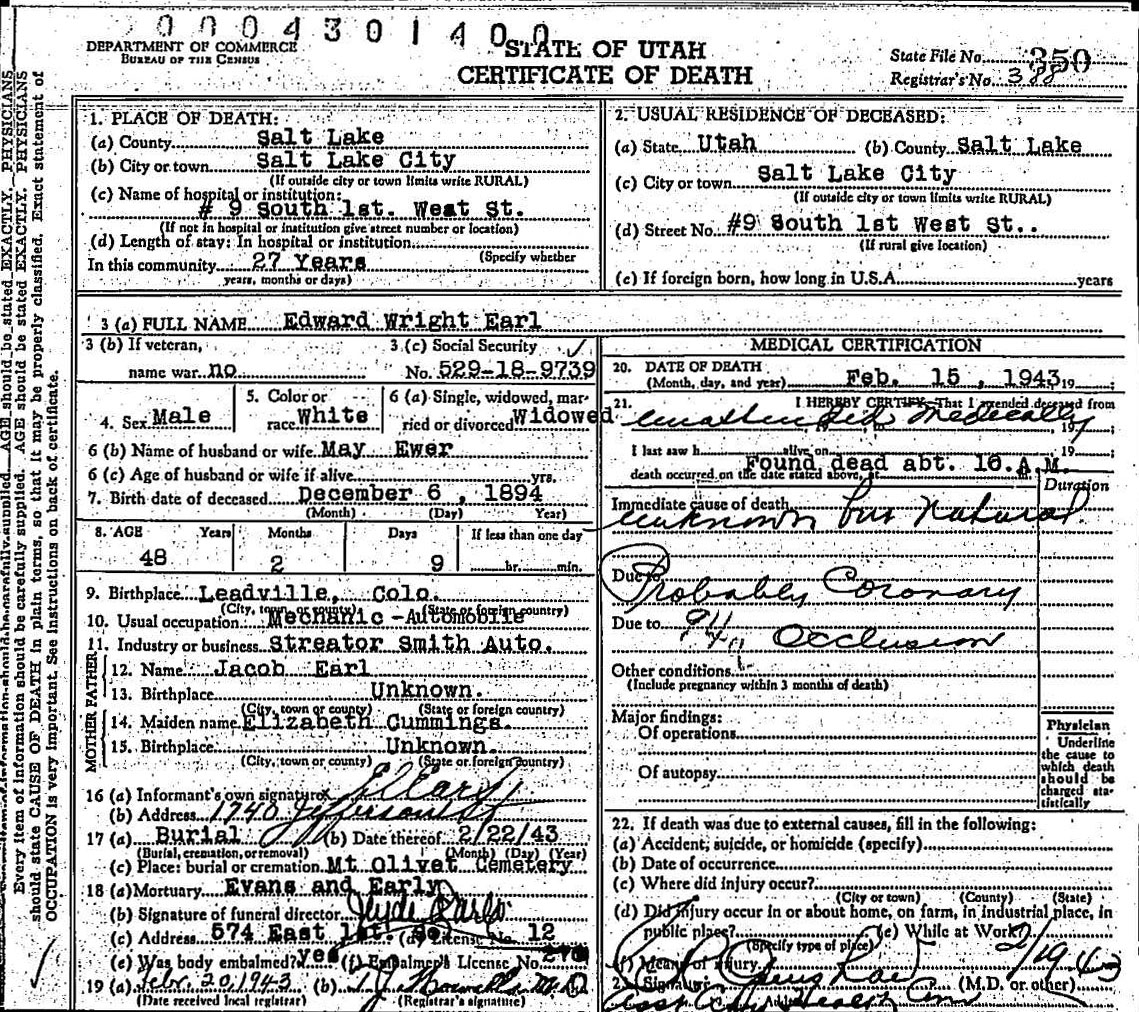 2000430140 0
DEPARTMENT OF COMMERCE
BUREAU OF THE CENSUS
STATE OF UTAH
CERTIFICATE OF DEATH
State File No. 350
Registrar's No. 388
Every item of information should be carefully supplied. AGE should be stated EXACTLY. PHYSICIANS
should state CAUSE OF DEATH in plain terms, so that it may be properly classified. Exact statement of
OCCUPATION is very important. See instructions on back of certificate.
1. PLACE OF DEATH:
(a) County Salt Lake
(b) City or town Salt Lake City
(If outside city or town limits write RURAL)
(c) Name of hospital or institution:
# 9 South 1st. West St.
(If not in hospital or institution give street number or location)
(d) Length of stay: In hospital or institution
(Specify whether
In this community 27 Years
years, months or days)
2. USUAL RESIDENCE OF DECEASED:
(a) State Utah (b) County Salt Lake
(c) City or town Salt Lake City
(If outside city or town limits write RURAL)
(d) Street No. #9 South 1st West St..
(If rural give location)
(e) If foreign born, how long in U.S.A. years
3 (a) FULL NAME Edward Wright Earl
3 (b) If veteran,
name war no
3 (c) Social Security ✓
No. 529-18-9739
4. Sex Male
5. Color or
race White
6 (a) Single, widowed, mar-
ried or divorced Widowed
6 (b) Name of husband or wife May Ewer
6 (c) Age of husband or wife if alive yrs.
7. Birth date of deceased December 6, 1894
(Month) (Day) Year)
8. AGE Years Months Days If less than one day
48 2 9 hr. min.
9. Birthplace Leadville, Colo.
(City, town or county) (State or foreign country)
10. Usual occupation Mechanic - Automobile
11. Industry or business Streator Smith Auto.
FATHER
12. Name Jacob Earl
13. Birthplace Unknown.
(City, town or county) (State or foreign country)
MOTHER
14. Maiden name Elizabeth Cummings.
15. Birthplace Unknown.
(City, town or county) (State or foreign country)
16 (a) Informant's own signature E L Earl
(b) Address 1740 Jefferson St
17 (a) Burial (b) Date thereof 2/22/43
(Burial, cremation, or removal) (Month) (Day) (Year)
(c) Place: burial or cremation Mt Olivet Cemetery
18 (a) Mortuary Evans and Early
(b) Signature of funeral director
(c) Address 574 East 1st. So. (d) License No. 12
(e) Was body embalmed? yes (f) Embalmer's License No. 270
19 (a) Febr. 20, 1943 (b) M.D.
(Date received local registrar) (Registrar's signature)
MEDICAL CERTIFICATION
20. DATE OF DEATH
(Month, day, and year) Feb. 15, 1943 19 ;
21. I HEREBY CERTIFY, That I attended deceased from
unattended medically , 19 ;
I last saw h alive on , 19 ;
death occurred on the date stated above, at m.
Found dead abt. 10.A.M.
Duration
Immediate cause of death
unknown but Natural
Due to Probably Coronary
Due to 94a Occlusion
Other conditions
(Include pregnancy within 3 months of death)
Major findings:
Of operations
Of autopsy
Physician
Underline
the cause to
which death
should be
charged sta-
tistically
22. If death was due to external causes, fill in the following:
(a) Accident, suicide, or homicide (specify)
(b) Date of occurrence
(c) Where did injury occur?
(City or town) (County) (State)
(d) Did injury occur in or about home, on farm, in industrial place, in
public place? (e) While at Work?
(Specify type of place)
(f) Means of injury 2/19-43
Signature (M.D. or other)